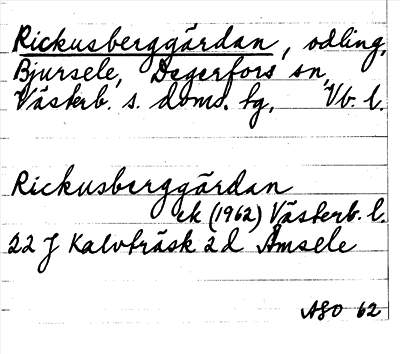 Rickusberggärdan, odling,
Bjursele, Degerfors sn,
Västerb. s. doms. tg, Vb. l.
Rickusberggärdan
ek (1962) Västerb. l.
22 J Kalvträsk 2 d Åmsele
ASO 62